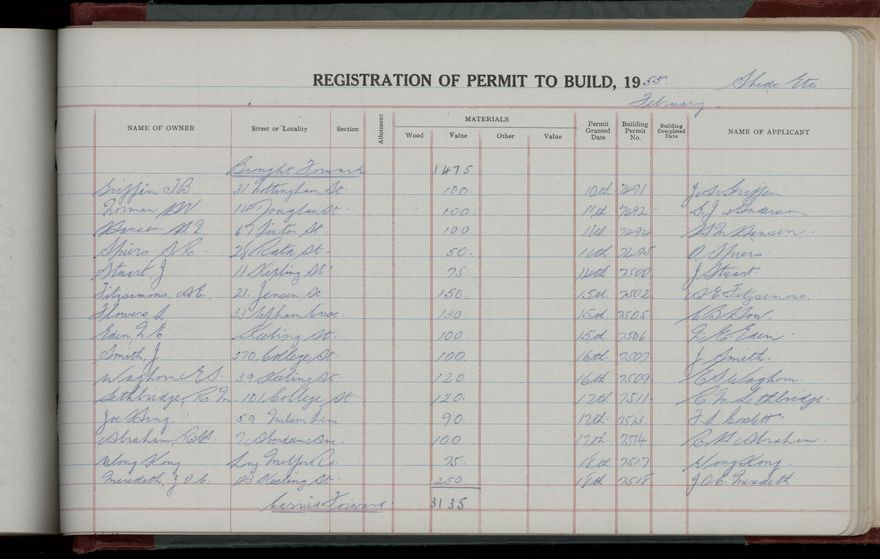 REGISTRATION OF PERMIT TO BUILD, 1955 Sheds Etc
February
NAME OF OWNER Street or Locality Section Allotment MATERIALS Permit Granted Date Building Permit No. Building Completed Date NAME OF APPLICANT
Wood Value Other Value
Brought Forward 1475
Griffin J B 31 Nottingham St. 100 10th 7491 Griffin
Norman 14 Douglas St. 100. 11th 7492 G. J. Anderson
Hansen 67 St 100 11th 7494 Hansen.
Spiers 26 Rata St. 50. 11th 7495 Spiers
Stuart, J 11 Kipling St 75. 14th 7500 J Stuart
Fitzsimons, A E. 21. Jensen St. 150. 15th 7502 A E Fitzsimons.
Flowers 33 Upham 130 15th 7505
Eden, F E Keeling St. 100 15th 7506 F. E. Eden.
Smith, J 370 College St. 100. 16th 7507 J Smith.
Waghorn E S. 39 Keeling St. 120 16th 7509 E S Waghorn.
Lethbridge, R M. 101 College St. 120. 17th 7511 R M Lethbridge.
Joe Hing 59 90. 17th 7513
Abraham, 7 Aberdeen Ave. 100 17th 7514 Abraham.
Wong Kong Lng Melford Rd. 75. 18th 7517 Wong Kong.
Meredith, J O C. 43 Keeling St. 250 18th 7518 J O C Meredith
Carried Forward. 3135